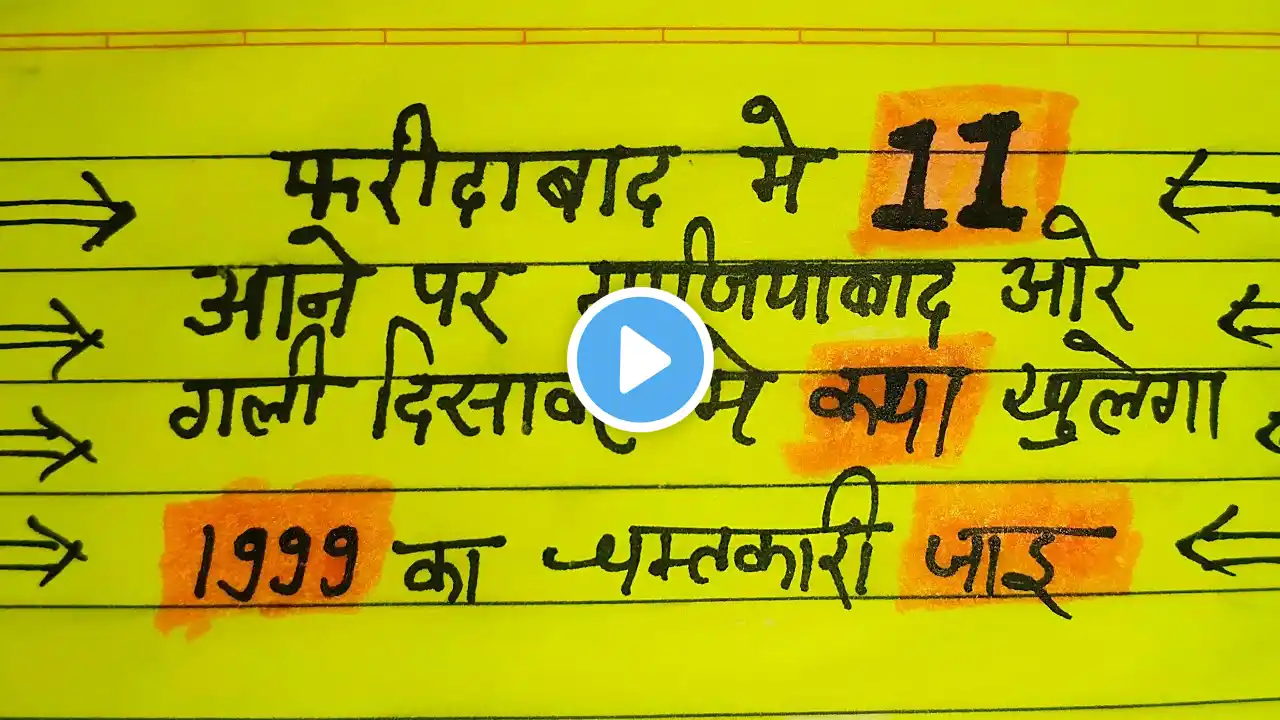 फरीदाबाद मे 11
आने पर गाजियाबाद ओर
गली दिसावर मे क्या खुलेगा
1999 का चम्तकारी जाइ